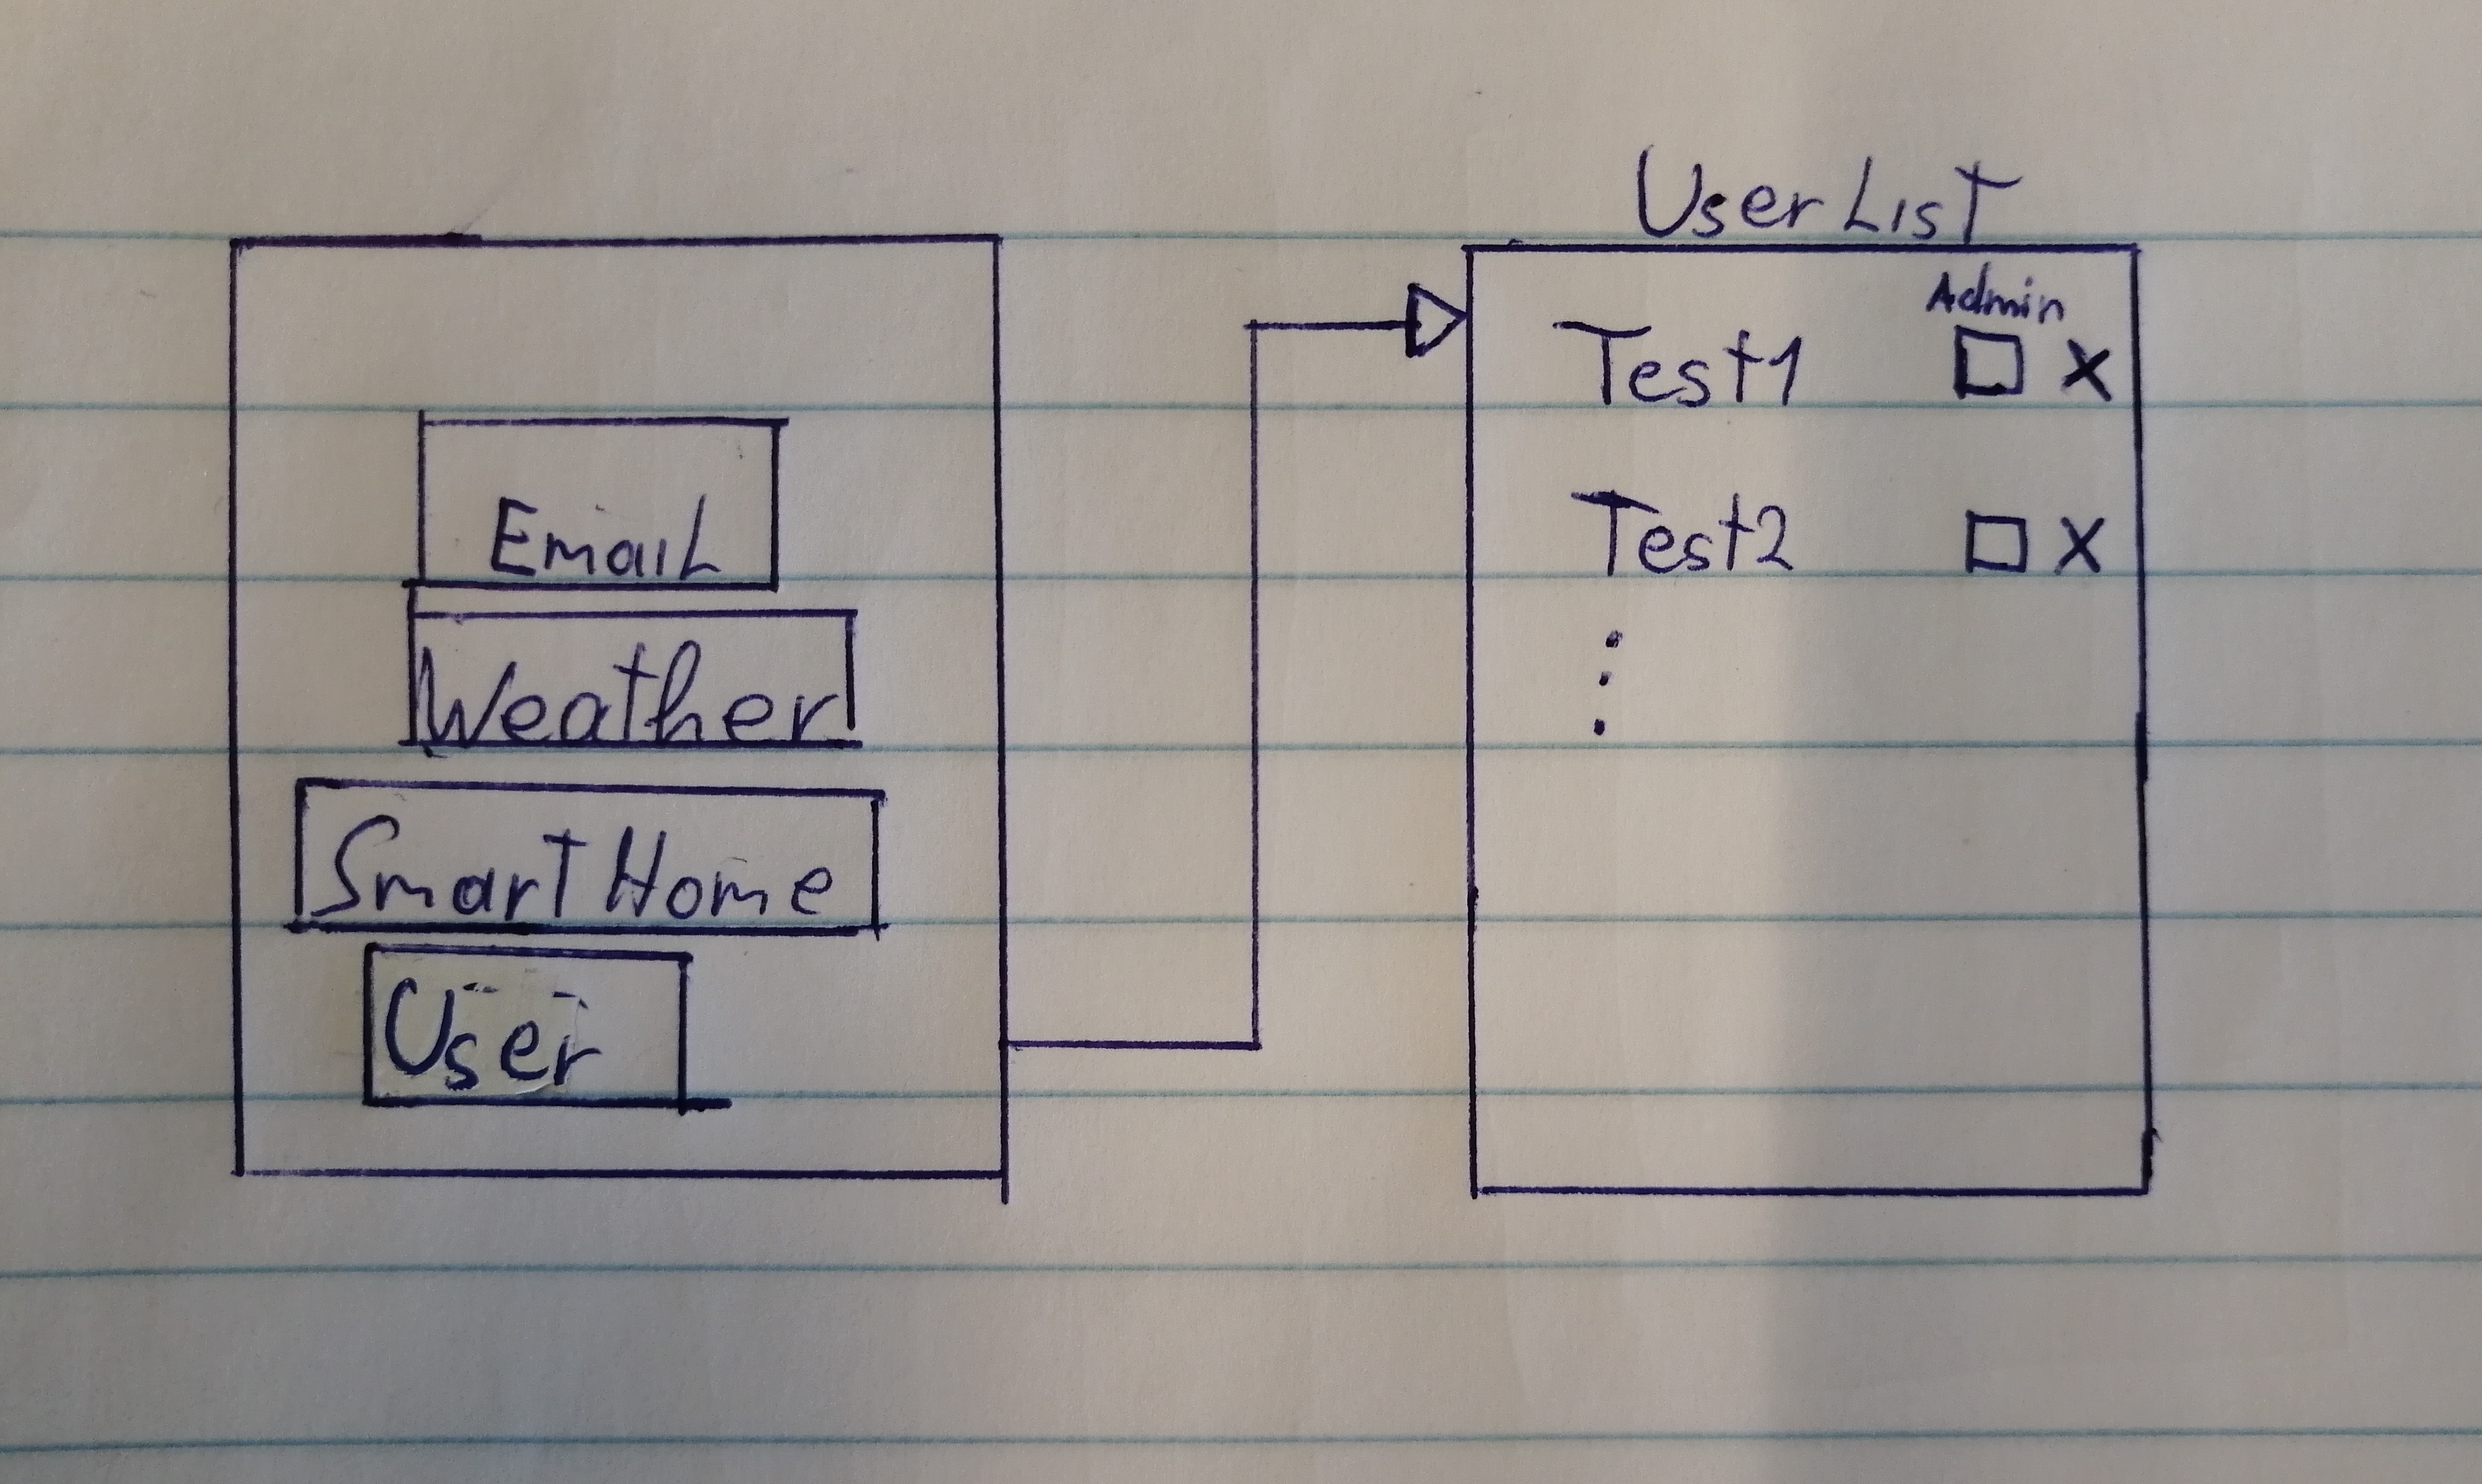 Email
Weather
Smart Home
User
User List
Admin
Test1 X
Test2 X